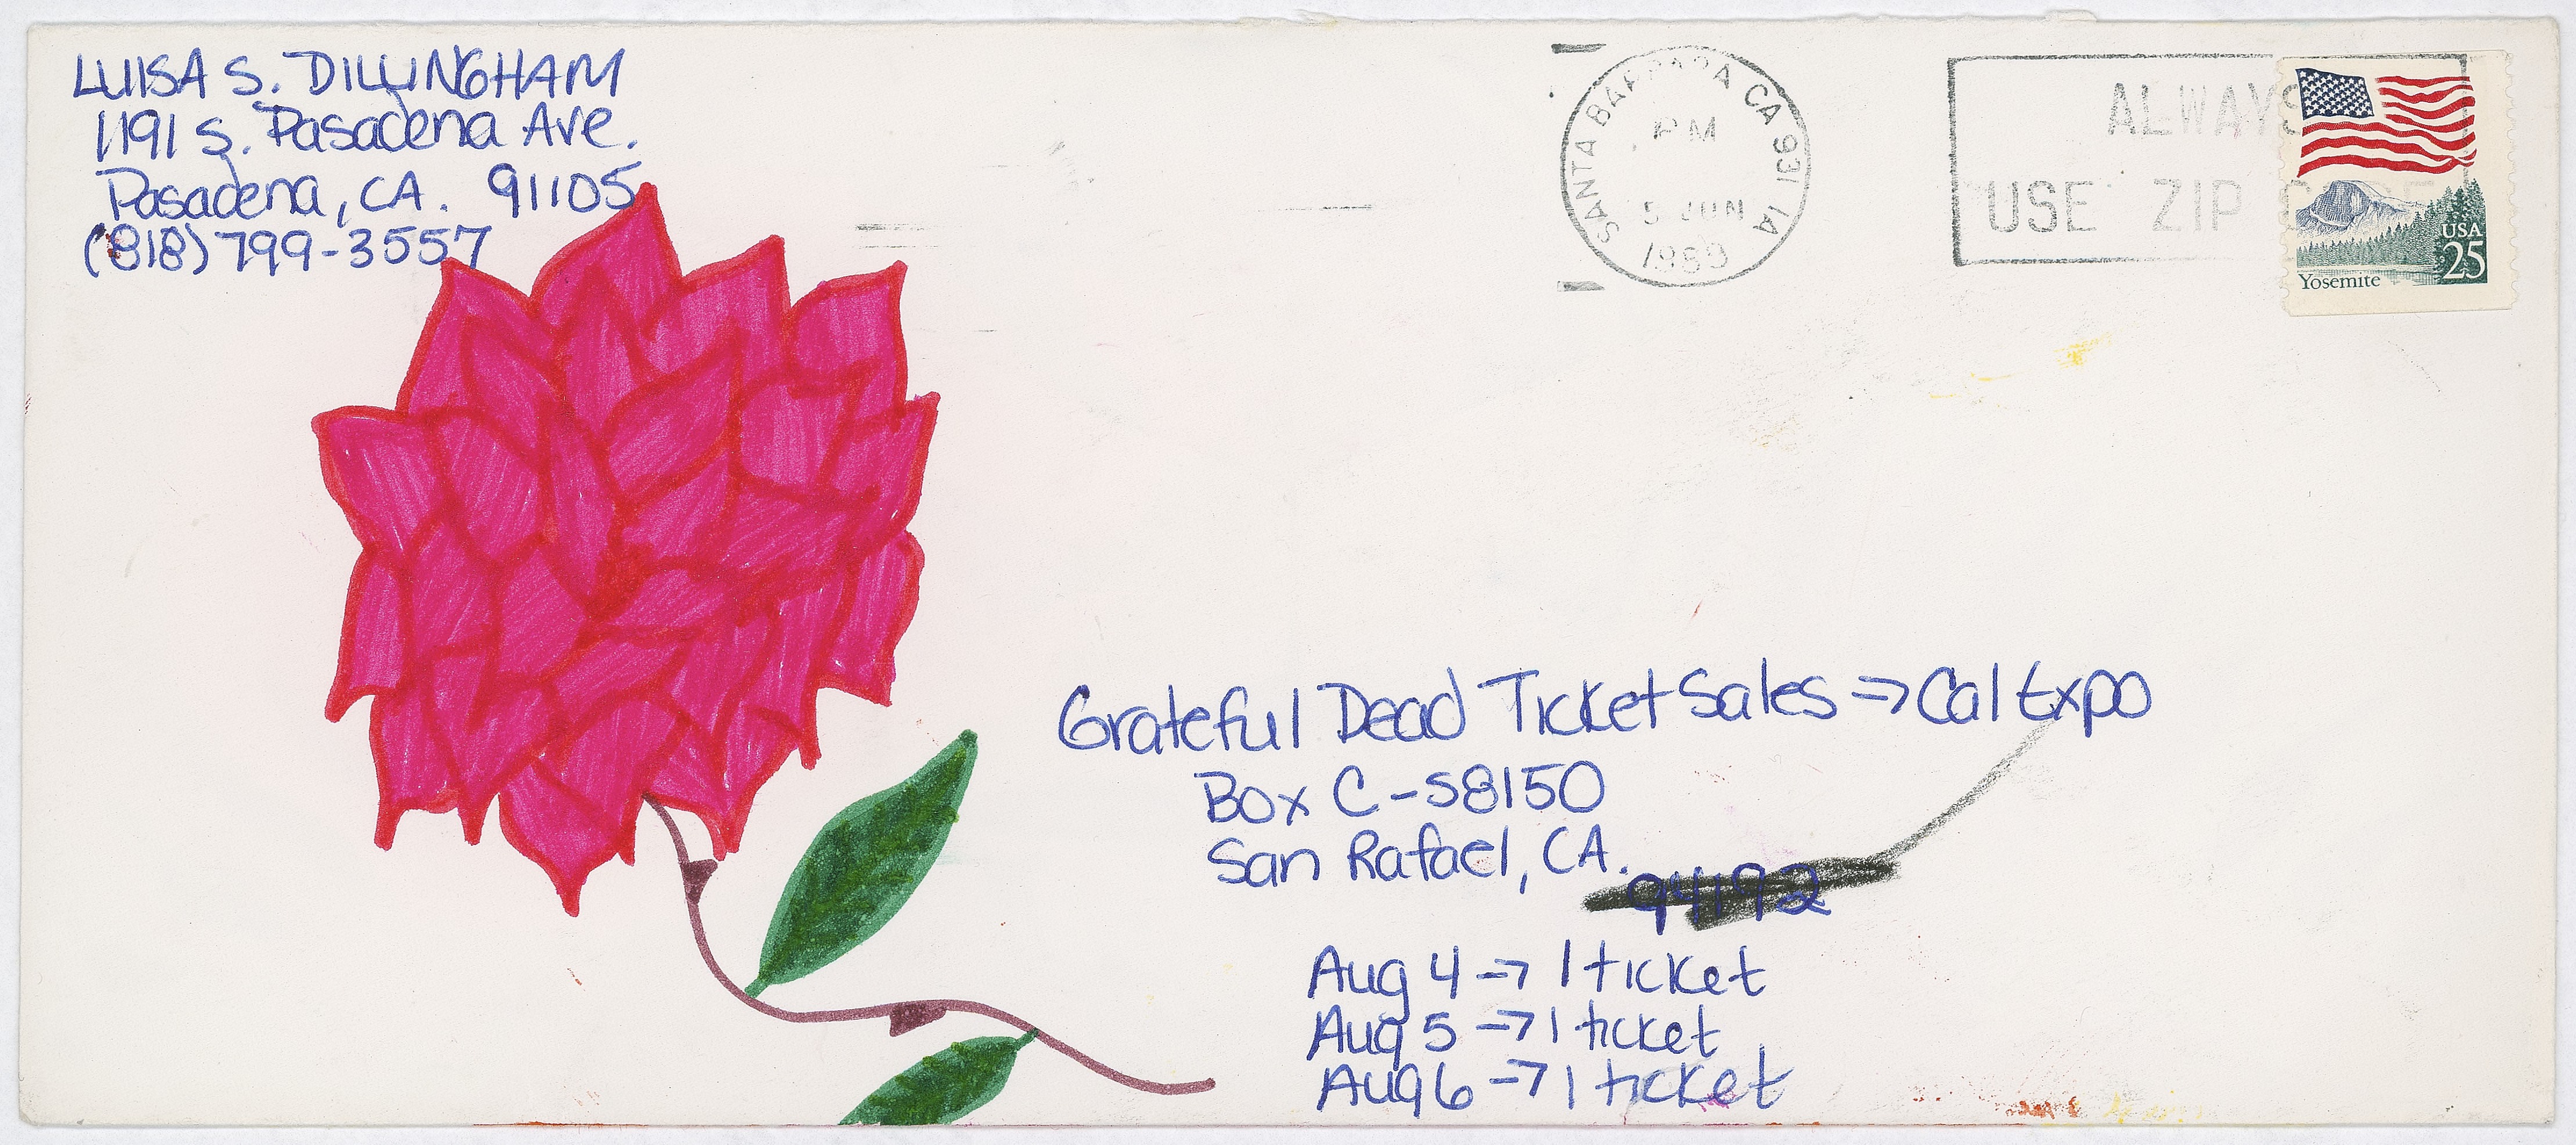 LUISA S. DILLINGHAM
1191 S. Pasadena Ave.
Pasadena, CA. 91105
(818) 799-3557
SANTA BARBARA CA 931 1A
PM
5 JUN
1989
ALWAYS
USE ZIP CODE
USA
25
Yosemite
Grateful Dead Ticket Sales => Cal Expo
Box C-S8150
San Rafael, CA.
94192
Aug 4 -> 1 ticket
Aug 5 -> 1 ticket
Aug 6 -> 1 ticket